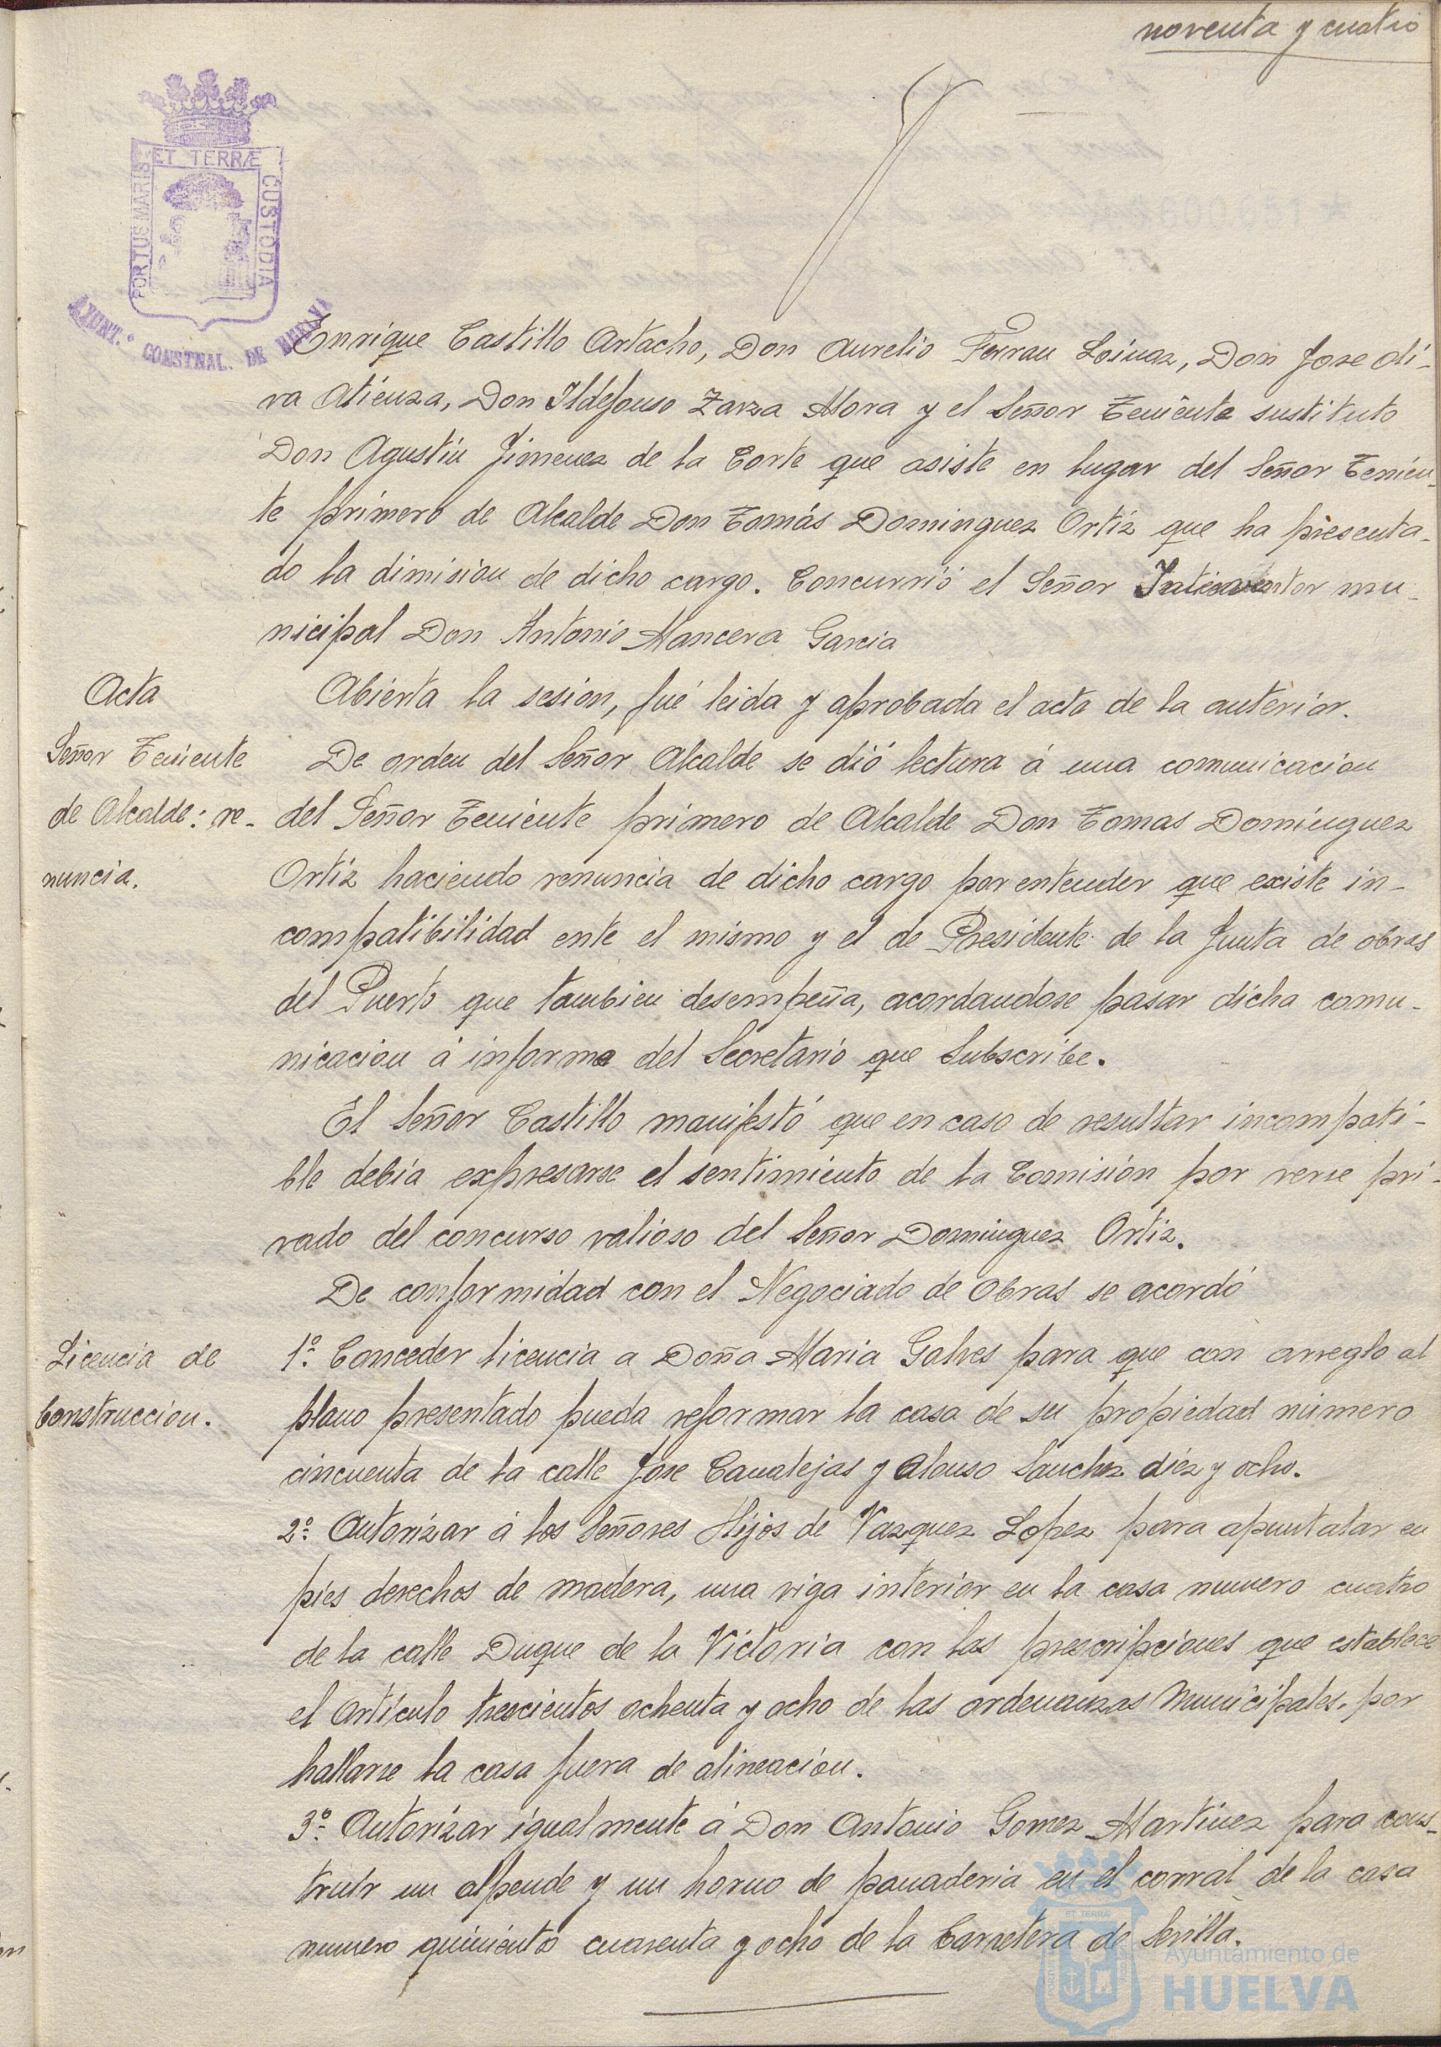 noventa y cuatro
ET TERRÆ
PORTUS MARIS
CUSTODIA
AYUNT.º CONSTNAL. DE HUELVA
Enrique Castillo Artacho, Don Aurelio Ferrau Loinaz, Don Jose Oli-
va Atienza, Don Ildefonso Zarza Mora y el Señor Teniente sustituto
Don Agustin Jimenez de la Corte que asiste en lugar del Señor Tenien-
te primero de Alcalde Don Tomás Dominguez Ortiz que ha presenta-
do la dimision de dicho cargo. Concurrió el Señor Interventor mu-
nicipal Don Antonio Mancera Garcia
Acta
Abierta la sesion, fué leida y aprobada el acta de la anterior.
Señor Teniente
de Alcalde: re-
nuncia.
De orden del Señor Alcalde se dió lectura á una comunicacion
del Señor Teniente primero de Alcalde Don Tomas Dominguez
Ortiz haciendo renuncia de dicho cargo por entender que existe in-
compatibilidad ente el mismo y el de Presidente de la Junta de obras
del Puerto que tambien desempeña, acordandose pasar dicha comu-
nicacion á informe del Secretario que Subscribe.
El Señor Castillo manifestó que en caso de resultar incompati-
ble debia expresarse el sentimiento de la Comisión por verse pri-
vado del concurso valioso del Señor Dominguez Ortiz.
De conformidad con el Negociado de Obras se acordó
Licencia de
Construccion.
1º. Conceder licencia a Doña Maria Galves para que con arreglo al
plano presentado pueda reformar la casa de su propiedad número
cincuenta de la calle Jose Canalejas y Alonso Sanchez diez y ocho.
2º. Autorizar á los Señores Hijos de Vazquez Lopez para apuntalar en
pies derechos de madera, una viga interior en la casa numero cuatro
de la calle Duque de la Victoria con las prescripciones que establece
el Articulo trescientos ochenta y ocho de las ordenanzas Municipales. por
hallarse la casa fuera de alineacion.
3º. Autorizar igualmente á Don Antonio Gomez Martinez para cons-
truir un alpende y un horno de panaderia en el corral de la casa
numero quinientos cuarenta y ocho de la Carretera de Sevilla.
Ayuntamiento de
HUELVA